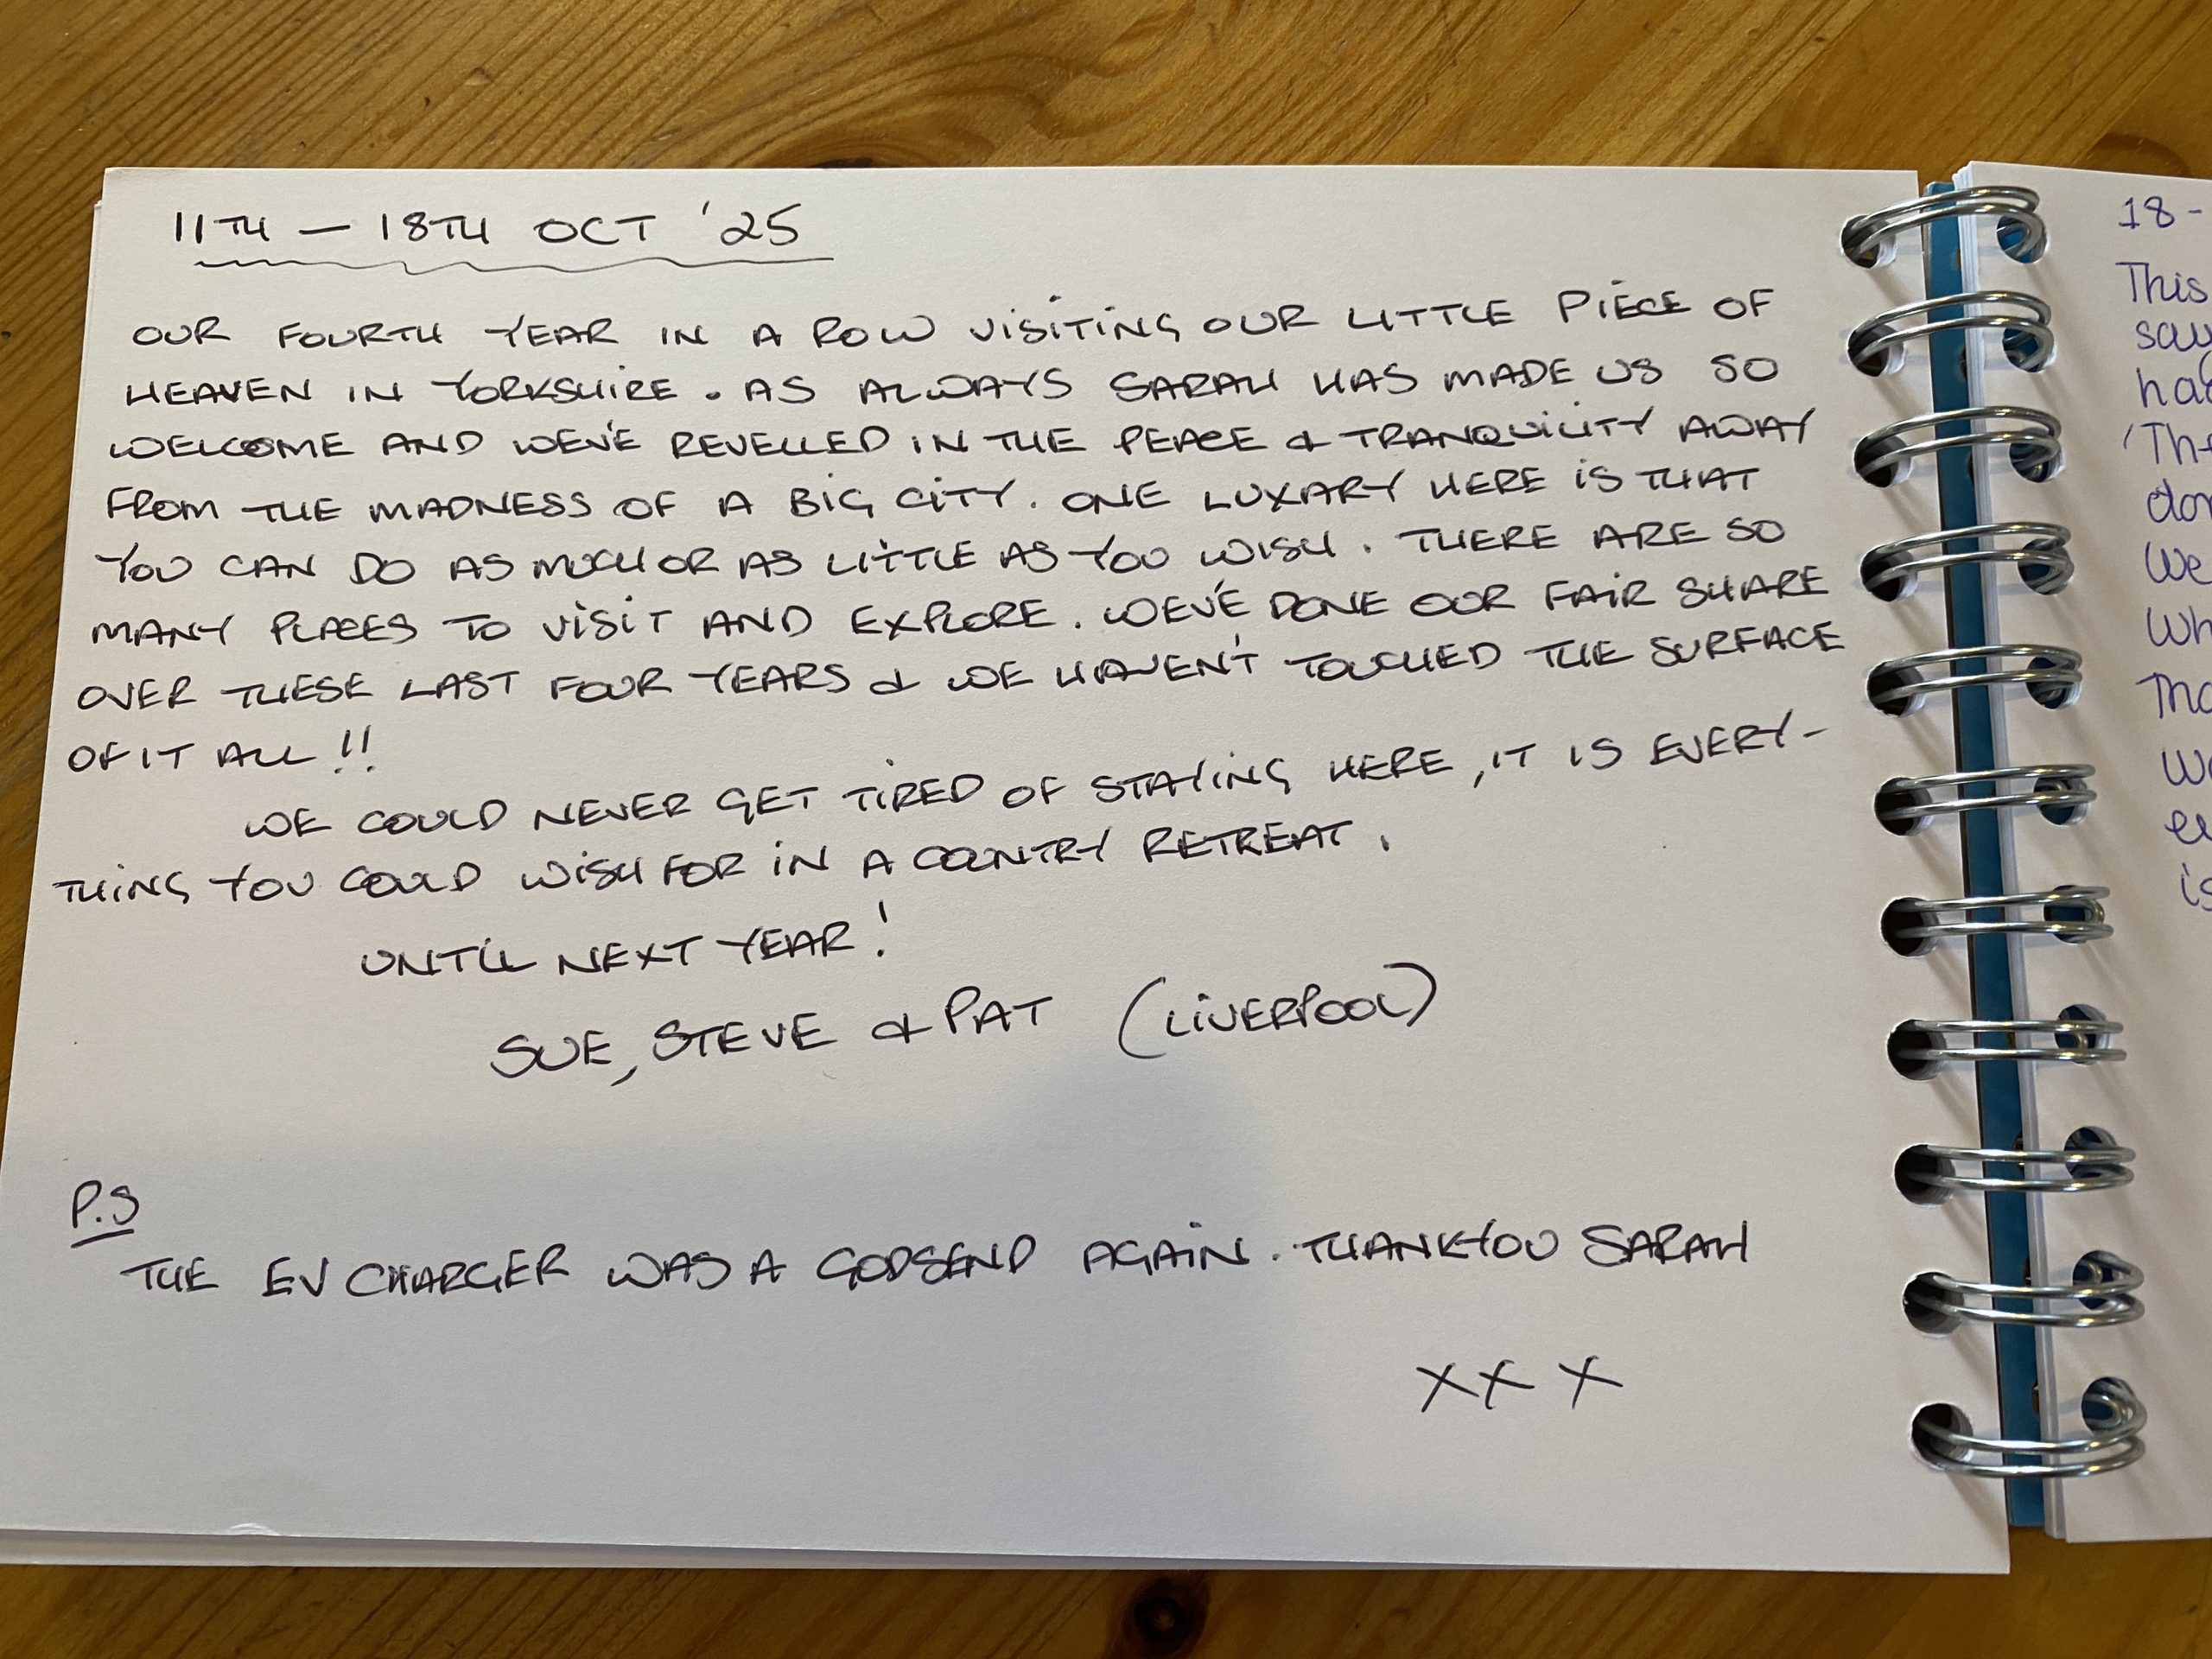 11TH — 18TH OCT '25
OUR FOURTH YEAR IN A ROW VISITING OUR LITTLE PIECE OF
HEAVEN IN YORKSHIRE. AS ALWAYS SARAH HAS MADE US SO
WELCOME AND WE'VE REVELLED IN THE PEACE & TRANQUILITY AWAY
FROM THE MADNESS OF A BIG CITY. ONE LUXARY HERE IS THAT
YOU CAN DO AS MUCH OR AS LITTLE AS YOU WISH. THERE ARE SO
MANY PLACES TO VISIT AND EXPLORE. WE'VE DONE OUR FAIR SHARE
OVER THESE LAST FOUR YEARS & WE HAVEN'T TOUCHED THE SURFACE
OF IT ALL!!
WE COULD NEVER GET TIRED OF STAYING HERE, IT IS EVERY-
THING YOU COULD WISH FOR IN A COUNTRY RETREAT.
UNTIL NEXT YEAR!
SUE, STEVE & PAT (LIVERPOOL)
P.S
THE EV CHARGER WAS A GODSEND AGAIN. THANKYOU SARAH
XXX
18-
This
We
is